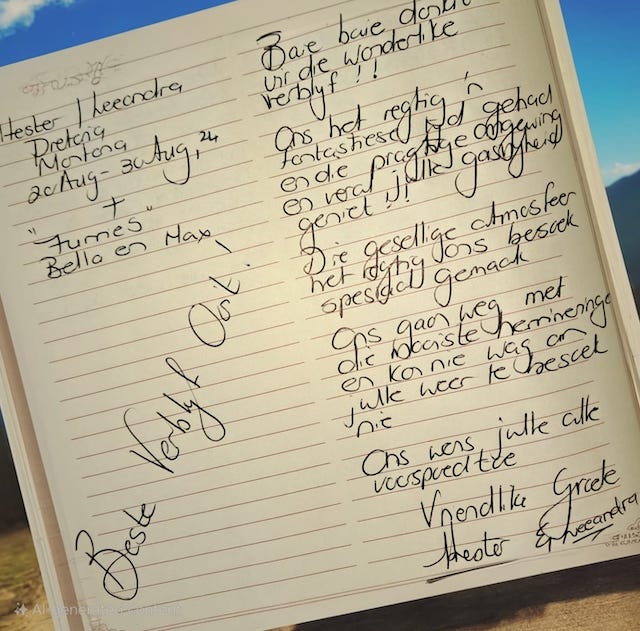 Hester / Leeandra
Pretoria
Montana
20 Aug - 30 Aug, 24
+
"Furries"
Bella en Max
Beste Verblyf Ooit!
Baie baie dankie
vir die wonderlike
verblyf !!
Ons het regtig 'n
fantastiese tyd gehad
en die pragtige omgewing
en veral julle gasvryheid
geniet !!
Die gesellige atmosfeer
het regtig ons besoek
spesiaal gemaak
Ons gaan weg met
die mooiste herinneringe
en kan nie wag om
julle weer te besoek
nie
Ons wens julle alle
voorspoed toe
Vriendlike Groete
Hester & Leeandra
AI-generated content